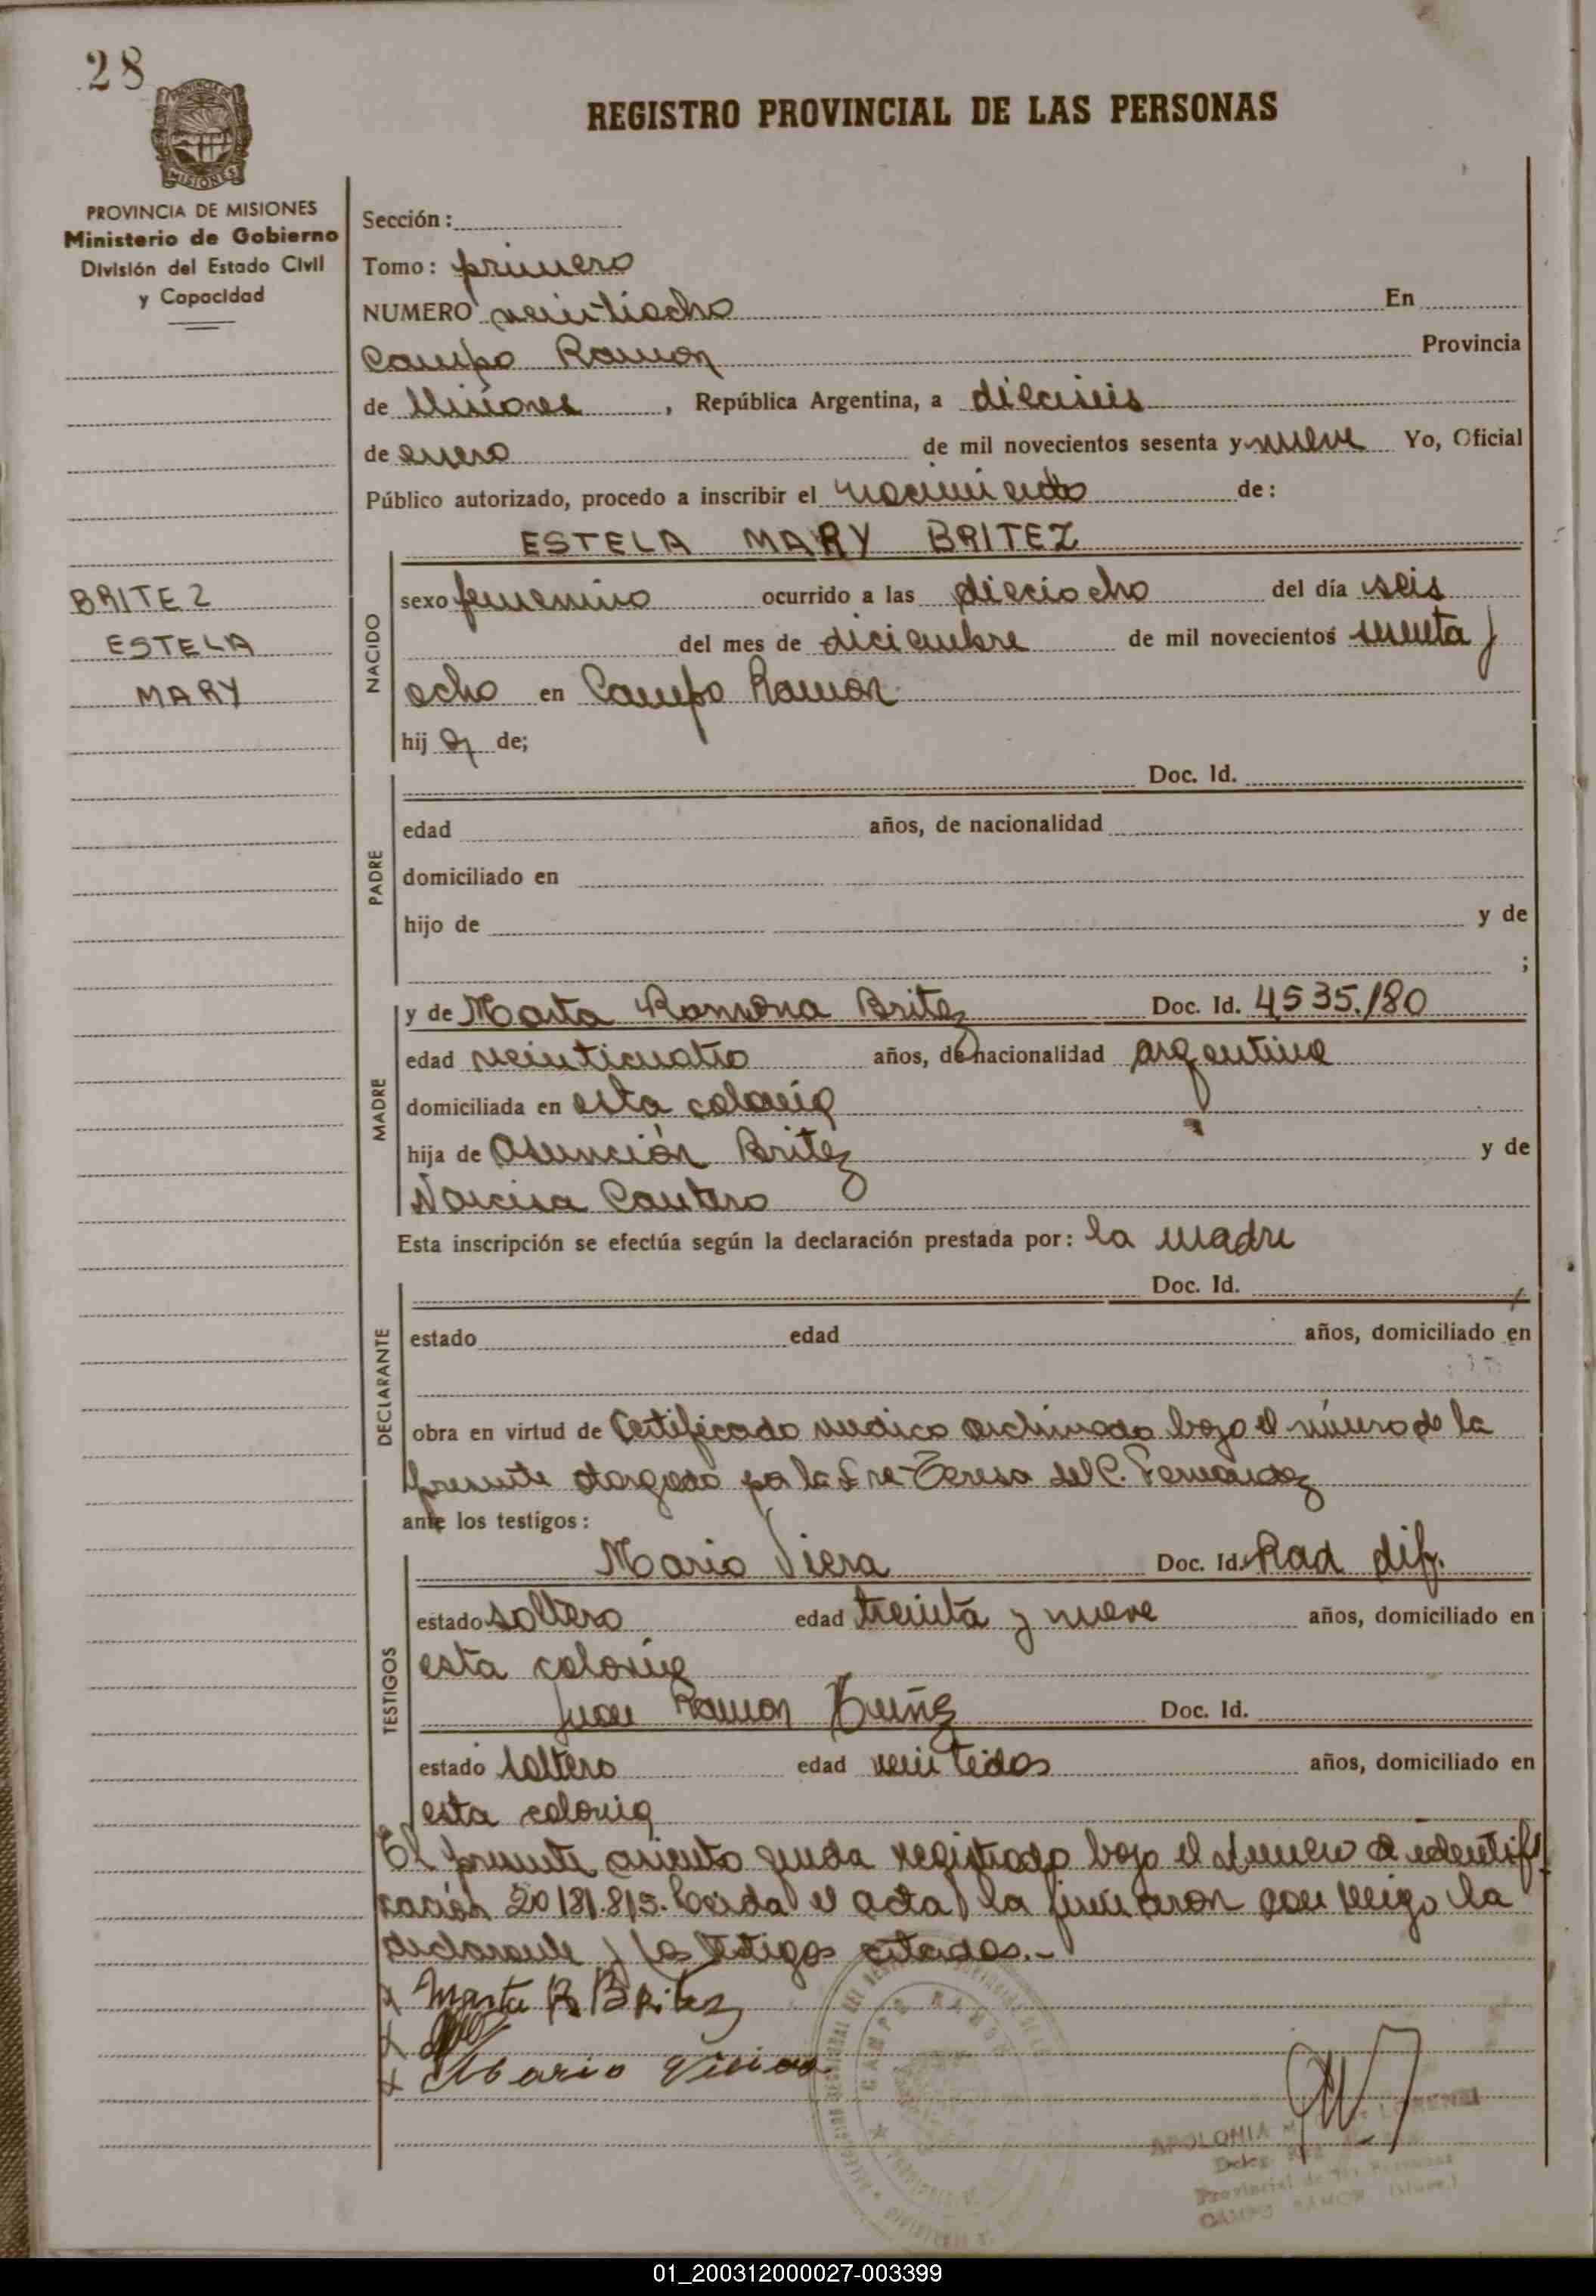 28
PROVINCIA DE MISIONES
Ministerio de Gobierno
División del Estado Civil
y Capacidad
REGISTRO PROVINCIAL DE LAS PERSONAS
Sección:
Tomo: primero
NUMERO veintiocho En
Campo Ramon Provincia
de Misiones, República Argentina, a dieciseis
de enero de mil novecientos sesenta y nueve Yo, Oficial
Público autorizado, procedo a inscribir el nacimiento de:
ESTELA MARY BRITEZ
BRITEZ
ESTELA
MARY
NACIDO
sexo femenino ocurrido a las dieciocho del día seis
del mes de diciembre de mil novecientos sesenta y
ocho en Campo Ramon
hij a de;
PADRE
Doc. Id.
edad años, de nacionalidad
domiciliado en
hijo de y de
;
MADRE
y de Marta Ramona Britez Doc. Id. 4535.180
edad veinticuatro años, de nacionalidad argentina
domiciliada en esta colonia
hija de Asunción Britez y de
Narcisa Cantero
Esta inscripción se efectúa según la declaración prestada por: la madre
DECLARANTE
Doc. Id.
estado edad años, domiciliado en
obra en virtud de Certificado medico archivado bajo el número de la
presente otorgado por la Teresa del C. Fernandez
ante los testigos:
TESTIGOS
Mario Viera Doc. Id. Rad dif.
estado soltero edad treinta y nueve años, domiciliado en
esta colonia
Juan Ramon Doc. Id.
estado soltero edad veintidos años, domiciliado en
esta colonia
El presente asiento queda registrado bajo el número de identifi
cación 20.181.815. Leida el acta la firmaron con migo la
declarante y los testigos citados.-
x Marta R Britez
x
x Mario Vieira
CAMPO RAMON
APOLONIA LORENZI
Provincial de las Personas
CAMPO RAMON (Mnes.)
01_200312000027-003399